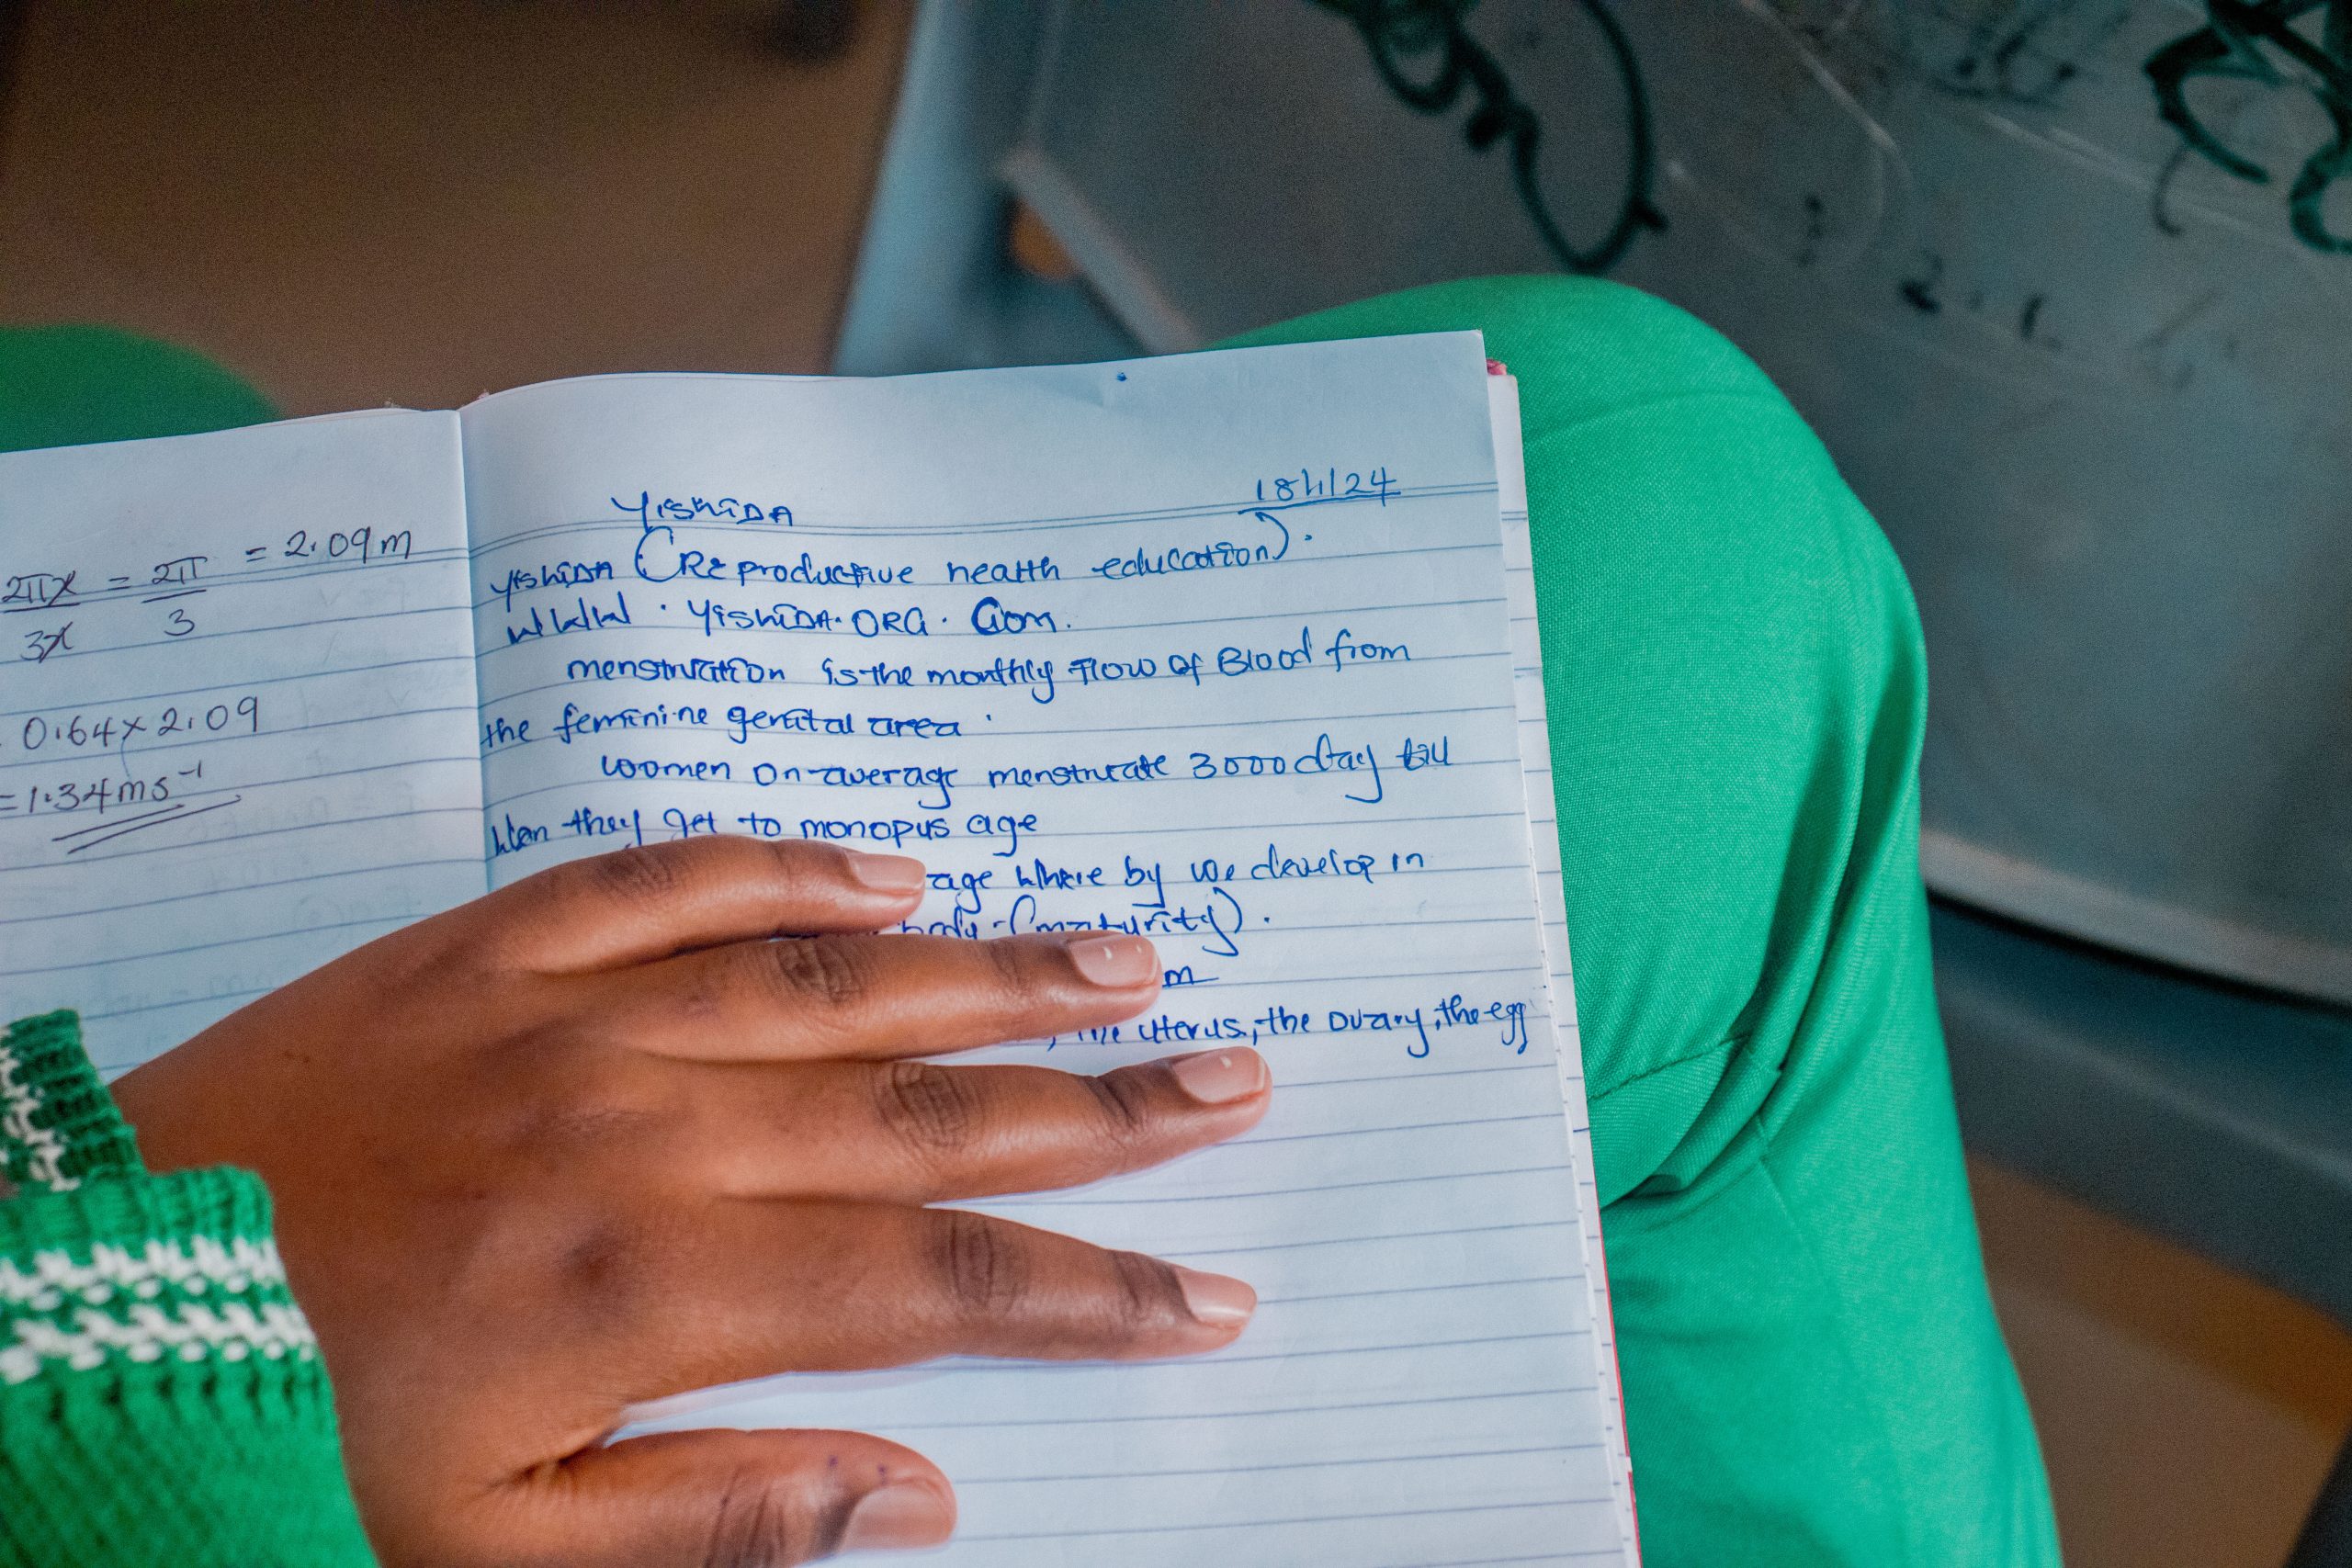 2πx/3x = 2π/3 = 2.09m
0.64 x 2.09
= 1.34ms⁻¹
YishiDA
18/1/24
YishiDA (Reproductive health education).
WWW. YishiDA. ORG. Com.
menstruation is the monthly flow of Blood from
the feminine genital area.
women on average menstruate 3000 day till
when they get to monopus age
age where by we develop in
body (maturity).
m
uterus, the ovary, the egg
2.1